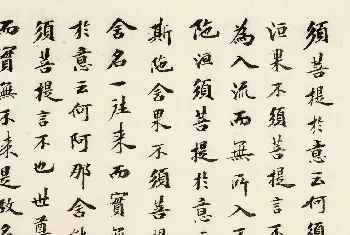 須菩提於意云何須
洹果不須菩提言不
為入流而無所入不
陁洹須菩提於意
斯陁含果不須菩
含名一往來而實
於意云何阿那含
須菩提言不也世尊
而實無不來是故名